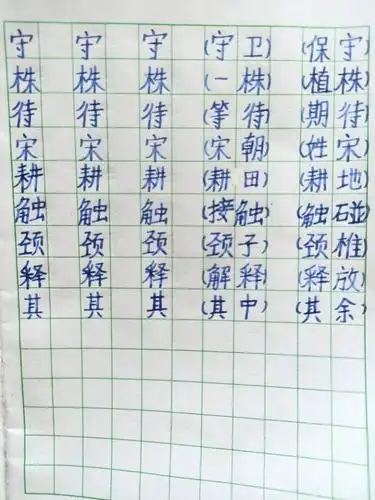 守 守 守 (守卫) (保守)
株 株 株 (一株) (植株)
待 待 待 (等待) (期待)
宋 宋 宋 (宋朝) (姓宋)
耕 耕 耕 (耕田) (耕地)
触 触 触 (接触) (触碰)
颈 颈 颈 (颈子) (颈椎)
释 释 释 (解释) (释放)
其 其 其 (其中) (其余)